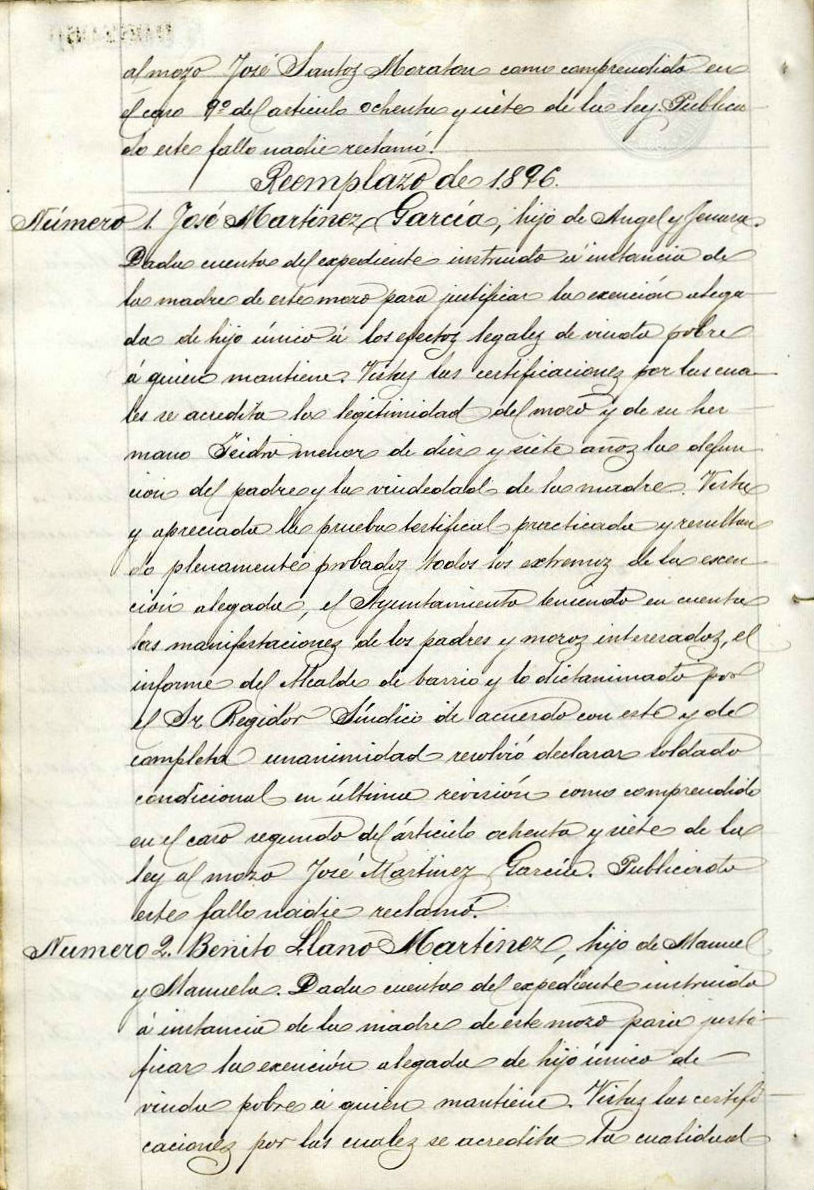 al mozo José Santos Moraton como comprendido en
el caso 9º del articulo ochenta y siete de la ley. Publica-
do este fallo nadie reclamó.
Reemplazo de 1896.
Número 1. José Martinez García, hijo de Angel y Genara.
Dada cuenta del expediente instruido á instancia de
la madre de este mozo para justificar la exención alega-
da de hijo único á los efectos legales de viuda pobre
á quien mantiene. Vistas las certificaciones por las cua-
les se acredita la legitimidad del mozo y de su her-
mano Isidro menor de diez y siete años la defun-
cion del padre y la viudedad de la madre. Vista
y apreciada la prueba testifical practicada y resultan
do plenamente probados todos los extremos de la escen-
ción alegada, el Ayuntamiento teniendo en cuenta
las manifestaciones de los padres y mozos interesados, el
informe del Alcalde de barrio y lo dictaminado por
el Sr. Regidor Síndico de acuerdo con este y de
completa unanimidad resolvió declarar soldado
condicional en última revisión como comprendido
en el caso segundo del árticulo ochenta y siete de la
ley al mozo José Martinez García. Publicado
este fallo nadie reclamó.
Numero 2. Benito Llano Martinez, hijo de Manuel
y Manuela. Dada cuenta del expediente instruido
á instancia de la madre de este mozo para justi-
ficar la exención alegada de hijo único de
viuda pobre á quien mantiene. Vistas las certifi-
caciones por las cuales se acredita la cualidad